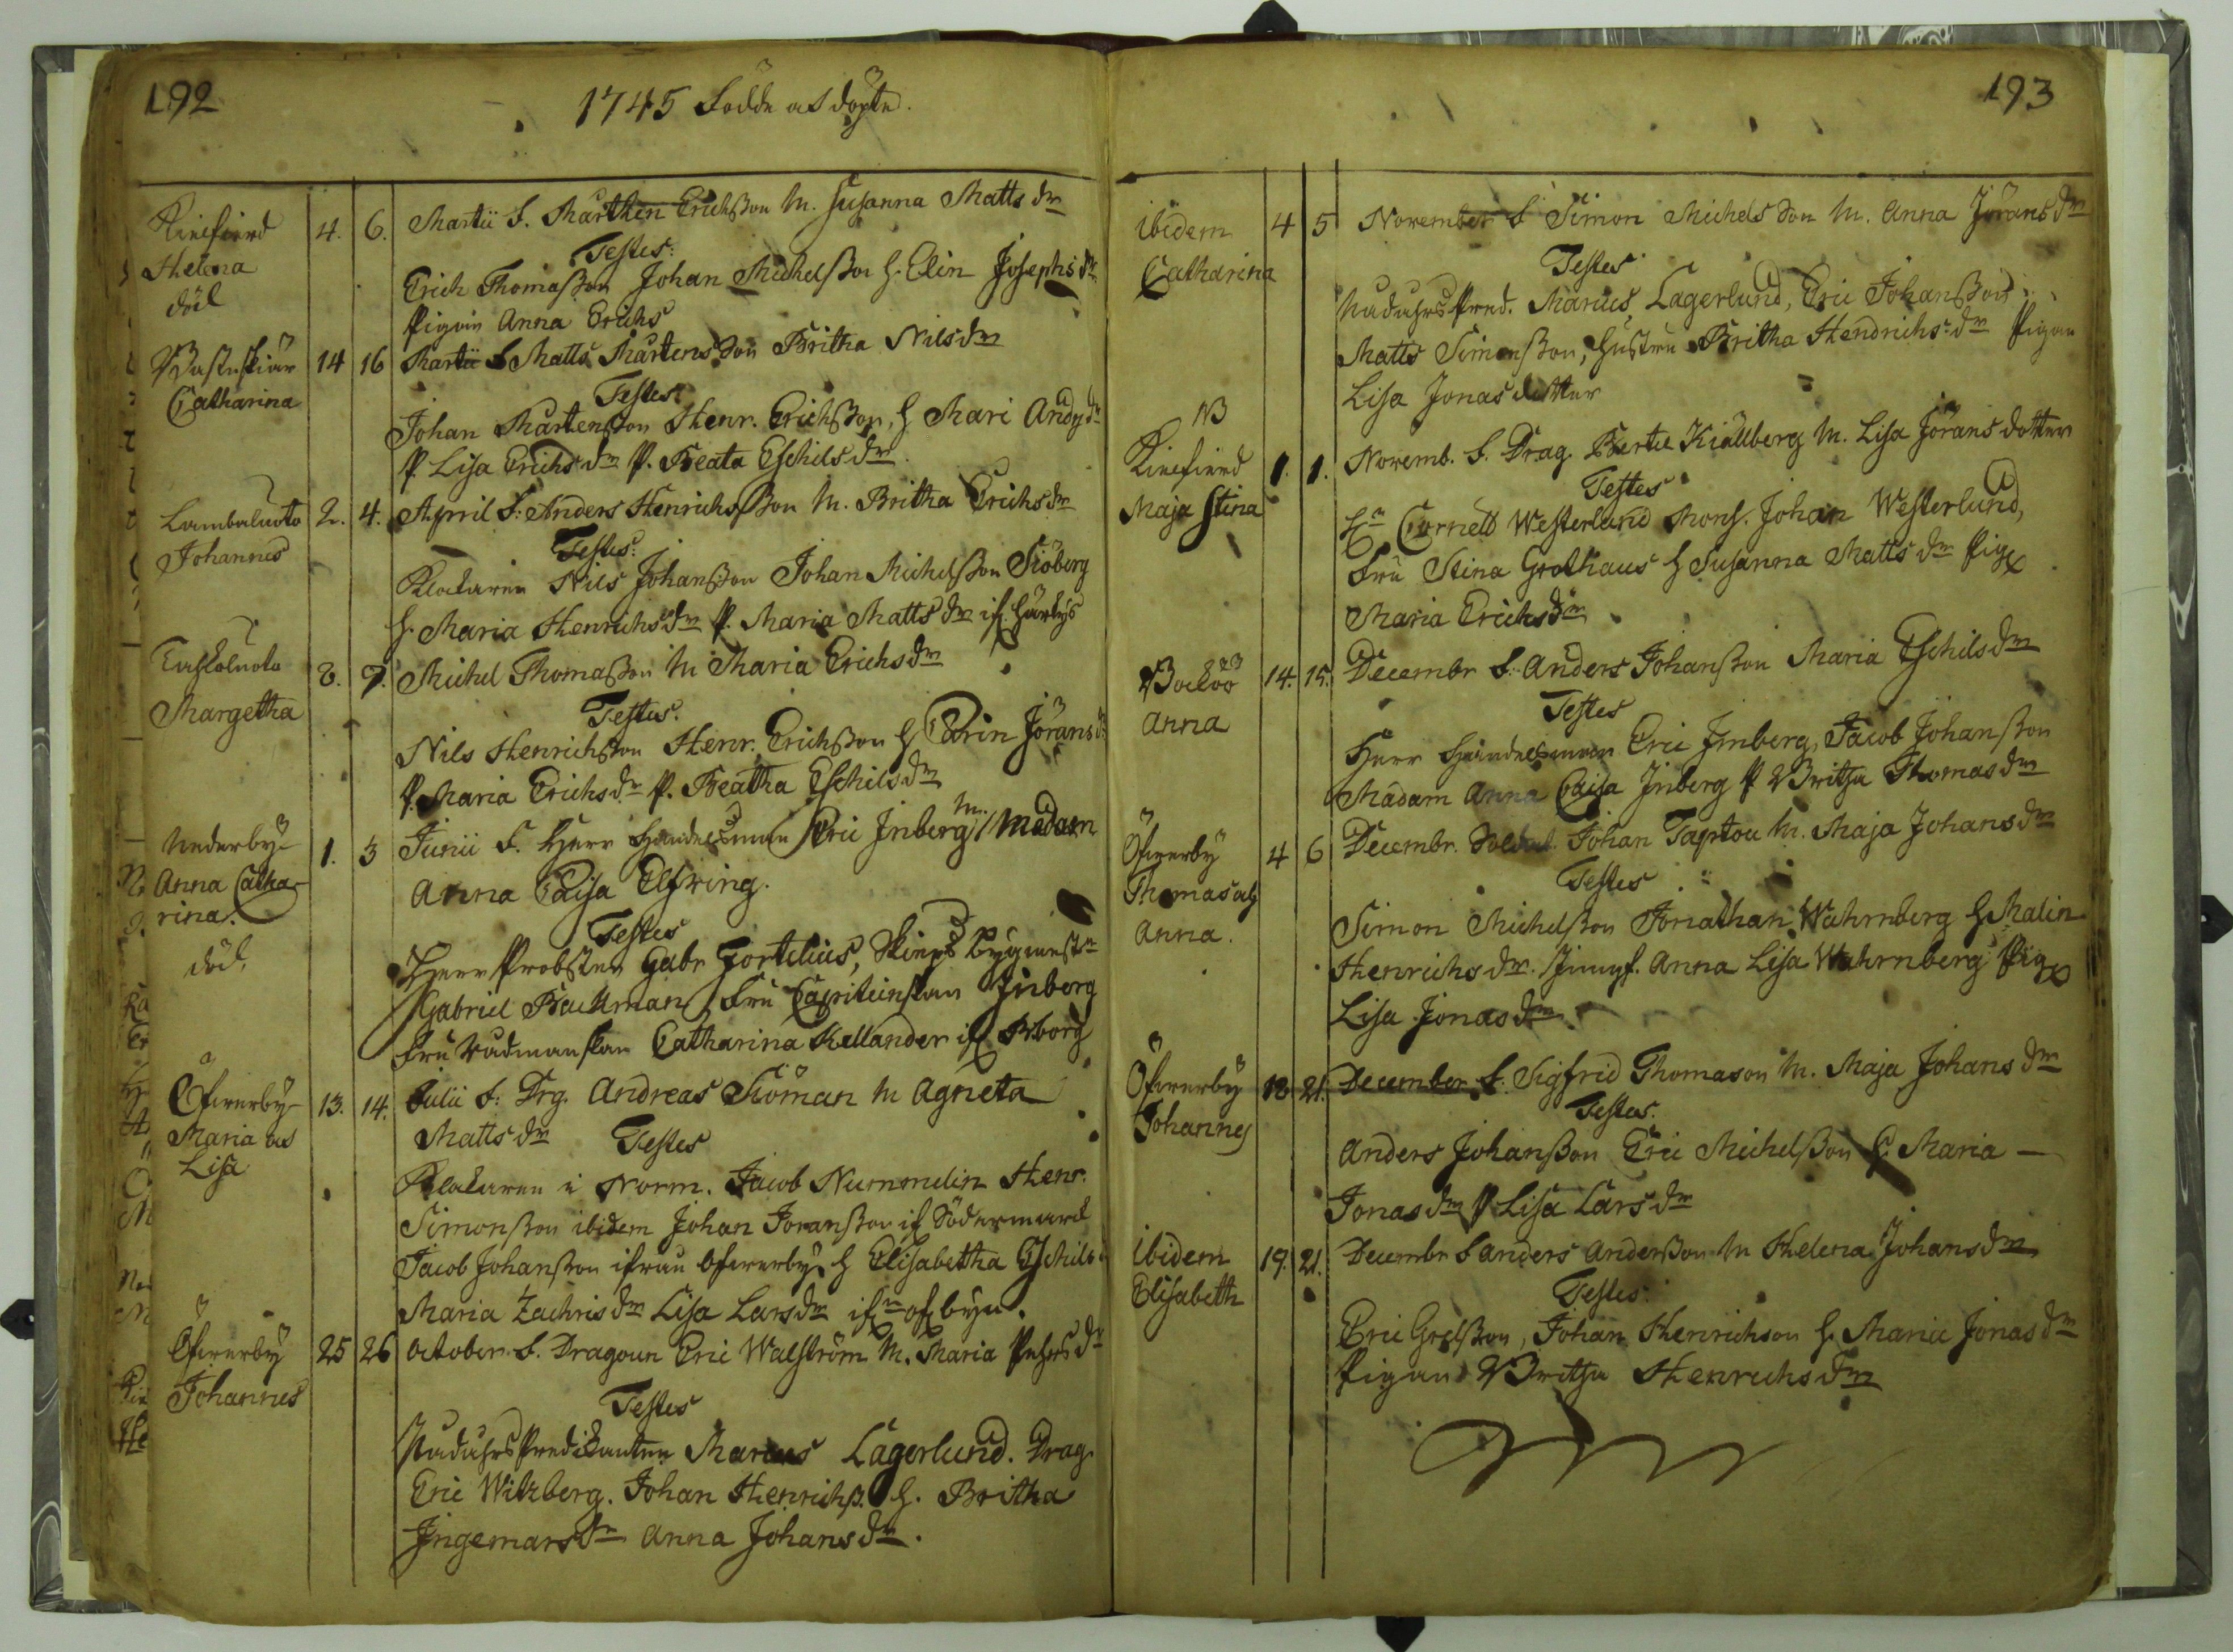 192
1745 Födde och döpte.
Helena
död
4. 6. Martii F. Mårthen Erichsson M. Susanna Matts dr
Testes:
Erich Thomasson Johan Michelsson H. Elin Josephs dr
Pigan Anna Erichs
Catharina
14 16 Martii F Matts Mårtensson Britha Nils dr
Testes
Johan Mårtensson Henr. Erichsson, H Mari And
P. Lisa Erichs dr P. Beata Eschils dr
Lambaluoto
Johannes
2. 4. April F: Anders Henrichsson M. Britha Erichs dr
Testes:
Klockaren Nils Johansson Johan Michelsson Siöberg
H. Maria Henrichs dr P. Maria Matts dr if.
Margetha
Michel Thomasson M Maria Erichs dr
Testes.
Nils Henrichsson Henr. Erichsson H Carin Jörans d
P. Maria Erichs dr P. Beatha Eschils dr
Nederby
Anna Catha
rina.
död.
1. 3 Junii F. Herr Handelsman Eric Inberg M. Madam
Anna Caisa Elfving.
Testes
Herr Probsten Gabr Fortelius,
Gabriel Backman Fru Capiteinskan Inberg
Fru Rådmanskan Catharina Kellander if Biborg
Öfverby
Maria och
Lisa
13. 14. Julii F: Drg. Andreas Siöman M Agneta
Matts dr Testes
Klockaren i Norm. Jacob Nummelin Henr.
Simonsson ibidem Johan Joransson if Södermarck
Jacob Johansson ifrån Öfverby H Elisabetha Eschils
Maria Zachris dr Lisa Lars dr
Öfverby
Johannes
25 26 October F. Dragoun Eric Walström M. Maria Pehrs dr
Testes
Predikanten Marcus Lagerlund. Drag.
Eric Witzberg. Johan Henrichss. H. Britha
Ingemars dr Anna Johans dr.
193
ibidem
Catharina
4 5 November F Simon Michelsson M. Anna Jörans dr
Testes
Pred. Marcus Lagerlund, Eric Johansson
Matts Simonsson, Hustru Britha Hendrichs dr Pigan
Lisa Jonas dotter
NB
Maja Stina
1. 1. Novemb. F. Drag. Bertil Kiällberg M. Lisa Jörans dotter
Testes
Hr Cornett Westerlund Mons. Johan Westerlund,
Fru Stina Grothaus H Susanna Matts dr Pig
Maria Erichs dr
Anna
14. 15. Decembr F. Anders Johansson Maria Eschils dr
Testes
Herr Handelsman Eric Inberg, Jacob Johansson
Madam Anna Caisa Inberg P Britha Thomas dr
Öfverby
Anna.
4 6 Decembr. Soldat. Johan Taptou M. Maja Johans dr
Testes
Simon Michelsson Jonathan Wahrnberg H Malin
Henrichs dr. Jungf. Anna Lisa Wahrnberg Pig
Lisa Jonas dr
Öfverby
Johannes
18 21. December F. Sigfrid Thomason M. Maja Johans dr
Testes.
Anders Johansson Eric Michelsson H. Maria
Jonas dr P Lisa Lars dr
ibidem
Elisabeth
19. 21. Decembr F Anders Andersson M Helena Johans dr
Testes
Eric Johan Henrichson H. Maria Jonas dr
Pigan Britha Henrichs dr